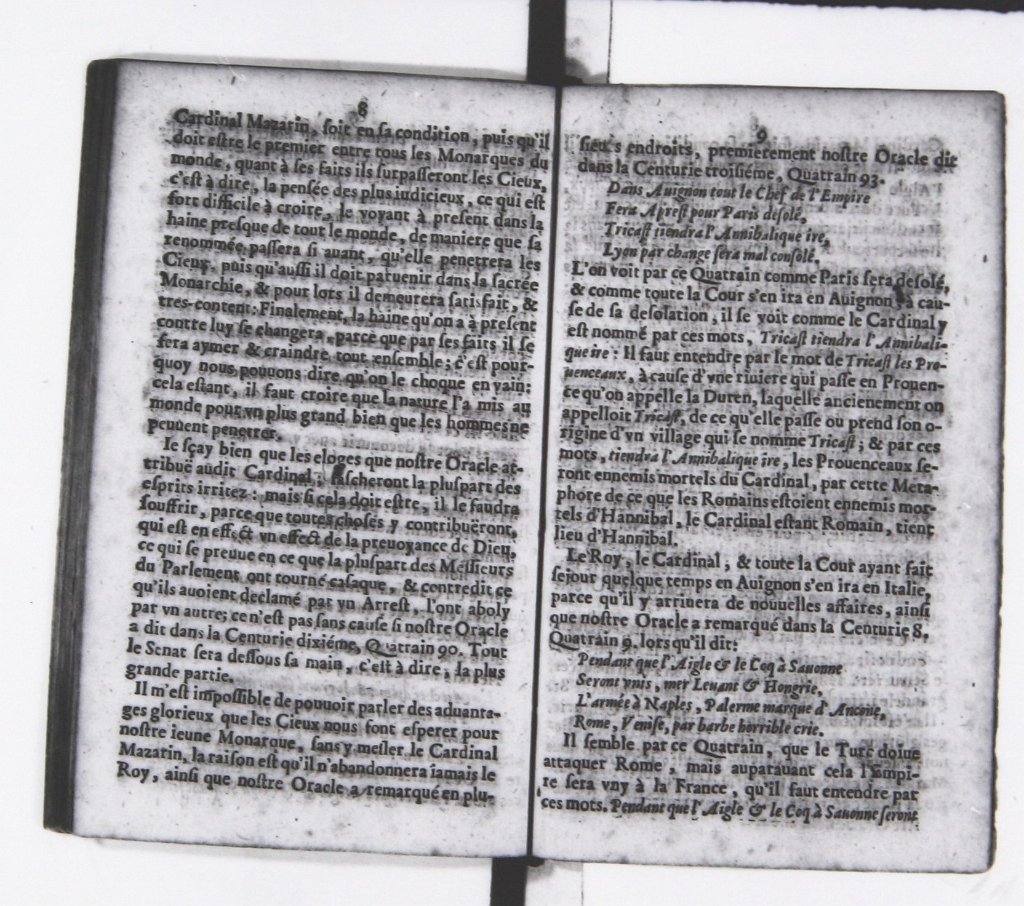 8
Cardinal Mazarin, soit en sa condition, puis qu'il
doit estre le premier entre tous les Monarques du
monde, quant à ses faits ils surpasseront les Cieux,
c'est à dire, la pensée des plus iudicieux, ce qui est
fort difficile à croire, le voyant à present dans la
haine presque de tout le monde, de maniere que sa
renommée passera si auant, qu'elle penetrera les
Cieux, puis qu'aussi il doit paruenir dans la sacrée
Monarchie, & pour lors il demeurera satisfait, &
tres-content: Finalement, la haine qu'on a à present
contre luy se changera, parce que par ses faits il se
fera aymer & craindre tout ensemble; c'est pour-
quoy nous pouuons dire qu'on le choque en vain:
cela estant, il faut croire que la nature l'a mis au
monde pour vn plus grand bien que les hommes ne
peuuent penetrer.
Ie sçay bien que les eloges que nostre Oracle at-
tribuë audit Cardinal, fascheront la pluspart des
esprits irritez: mais si cela doit estre, il le faudra
souffrir, parce que toutes choses y contribuëront,
qui est en effect vn effect de la preuoyance de Dieu,
ce qui se preuue en ce que la pluspart des Messieurs
du Parlement ont tourné casaque, & contredit ce
qu'ils auoient declamé par vn Arrest, l'ont aboly
par vn autre; ce n'est pas sans cause si nostre Oracle
a dit dans la Centurie dixiéme, Quatrain 90. Tout
le Senat sera dessous sa main, c'est à dire, la plus
grande partie.
Il m'est impossible de pouuoir parler des aduanta-
ges glorieux que les Cieux nous font esperer pour
nostre ieune Monarque, sans y mesler le Cardinal
Mazarin, la raison est qu'il n'abandonnera iamais le
Roy, ainsi que nostre Oracle a remarqué en plu-
9
sieurs endroits, premierement nostre Oracle dit
dans la Centurie troisiéme, Quatrain 93.
Dans Auignon tout le Chef de l'Empire
Fera Aprest pour Paris desolé,
Tricast tiendra l'Annibalique ire,
Lyon par change sera mal consolé.
L'on voit par ce Quatrain comme Paris sera desolé,
& comme toute la Cour s'en ira en Auignon à cau-
se de sa desolation, il se voit comme le Cardinal y
est nommé par ces mots, Tricast tiendra l'Annibali-
que ire: Il faut entendre par le mot de Tricast les Pro-
uenceaux, à cause d'vne riuiere qui passe en Prouen-
ce qu'on appelle la Duren, laquelle ancienement on
appelloit Tricast, de ce qu'elle passe ou prend son o-
rigine d'vn village qui se nomme Tricast; & par ces
mots, tiendra l'Annibalique ire, les Prouenceaux se-
ront ennemis mortels du Cardinal, par cette Meta-
phore de ce que les Romains estoient ennemis mor-
tels d'Hannibal, le Cardinal estant Romain, tient
lieu d'Hannibal.
Le Roy, le Cardinal, & toute la Cour ayant fait
sejour quelque temps en Auignon s'en ira en Italie,
parce qu'il y arriuera de nouuelles affaires, ainsi
que nostre Oracle a remarqué dans la Centurie 8.
Quatrain 9. lors qu'il dit:
Pendant que l'Aigle & le Coq à Sauonne
Seront vnis, mer Leuant & Hongrie,
L'armée à Naples, Palerme marque d'Ancone,
Rome, Venise, par barbe horrible crie.
Il semble par ce Quatrain, que le Turc doiue
attaquer Rome, mais auparauant cela l'Empi-
re sera vny à la France, qu'il faut entendre par
ces mots. Pendant que l'Aigle & le Coq à Sauonne seront